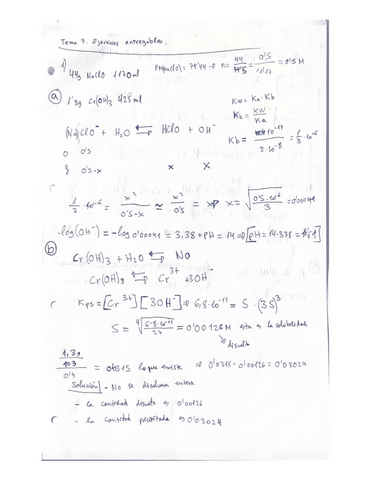 Tema 7. Ejercicios entregables.
44g NaClO 1170 ml
PM(NaClO) = 74'44 → n = 44 / 74'5 = 0'5 = 0'5 M
a) 1'3g Cr(OH)3 428 ml
Kw = Ka · Kb
Kb = Kw / Ka
(Na)ClO⁻ + H2O ⇌ HClO + OH⁻
Kb = 10⁻¹⁴ / 3·10⁻⁸ = 1/3 · 10⁻⁶
0 0'5
0'5-x x x
1/3 · 10⁻⁶ = x² / 0'5-x ≃ x² / 0'5 = x ⇒ x = √(0'5·10⁻⁶ / 3) = 0'00041
-log(OH⁻) = -log 0'00041 = 3,38 + pH = 14 ⇒ [pH = 14-3,38 =
b) Cr(OH)3 + H2O ⇌ No
Cr(OH)3 ⇌ Cr³⁺ + 3OH⁻
Kps = [Cr³⁺][3OH⁻] ⇒ 6,8·10⁻¹¹ = S · (3S)³
S = ⁴√(6,8·10⁻¹¹ / 27) = 0'00126 M esta es la solubilidad
disuelto
= 0'0315 lo que existe ⇒ 0'0315 - 0'00126 = 0'03024
Solución - No se disuelve entera
- la cantidad disuelta es 0'00126
- la cantidad precipitada es 0'03024